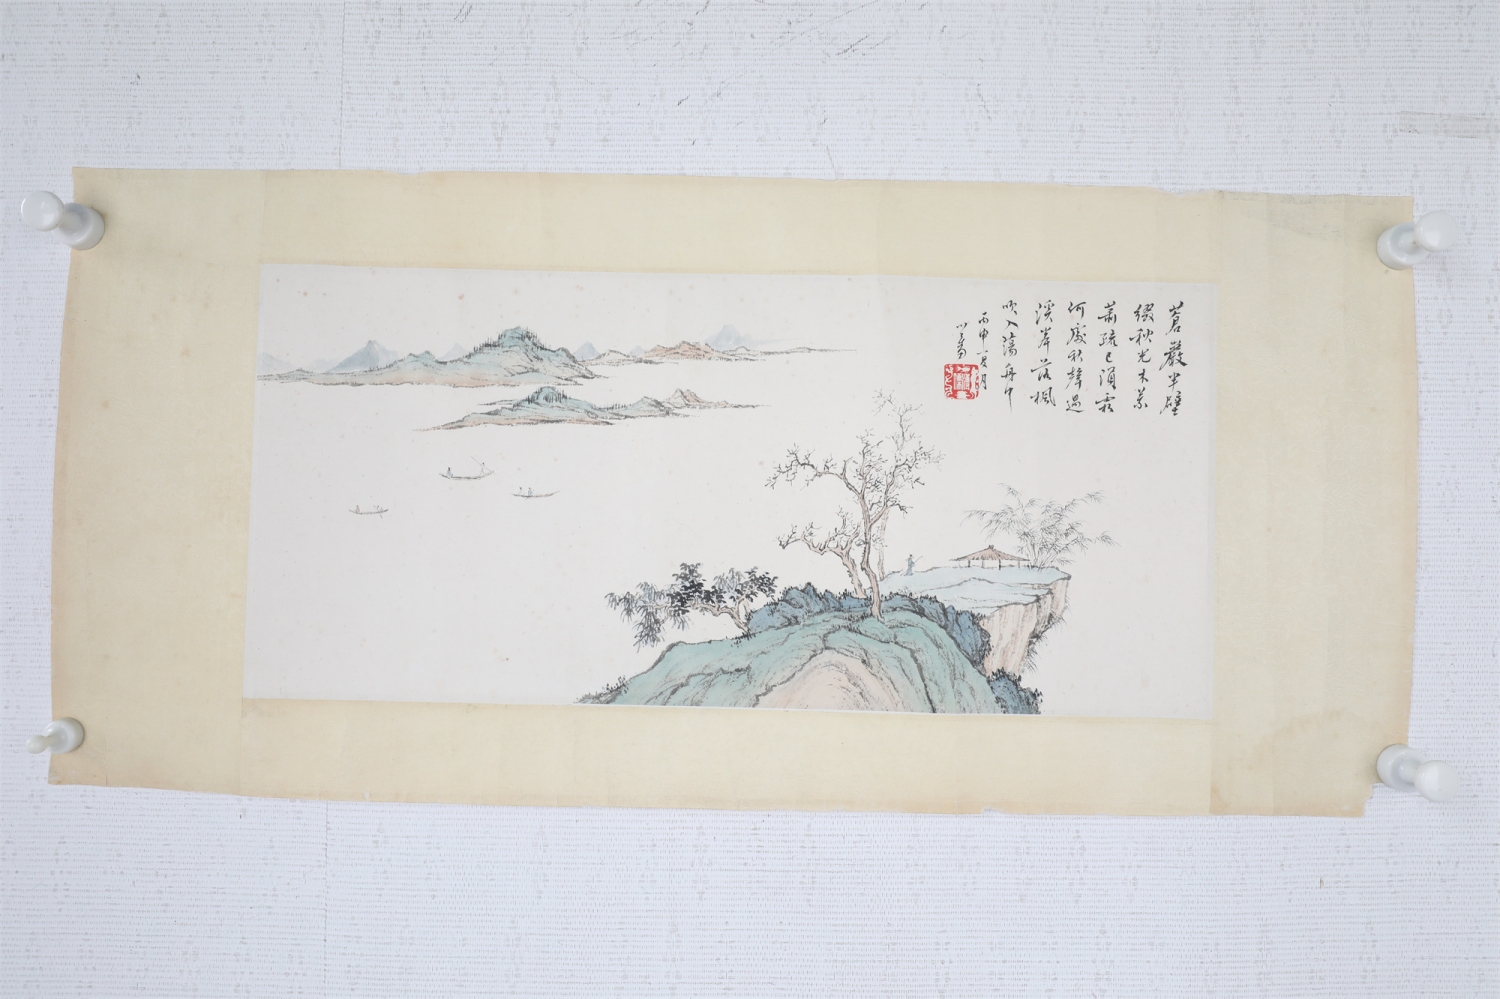 蒼巖半壁
綴秋光木葉
蕭疏已須霜
何處秋聲過
溪岸落楓
吹入蕩舟中
丙申一月
心畬